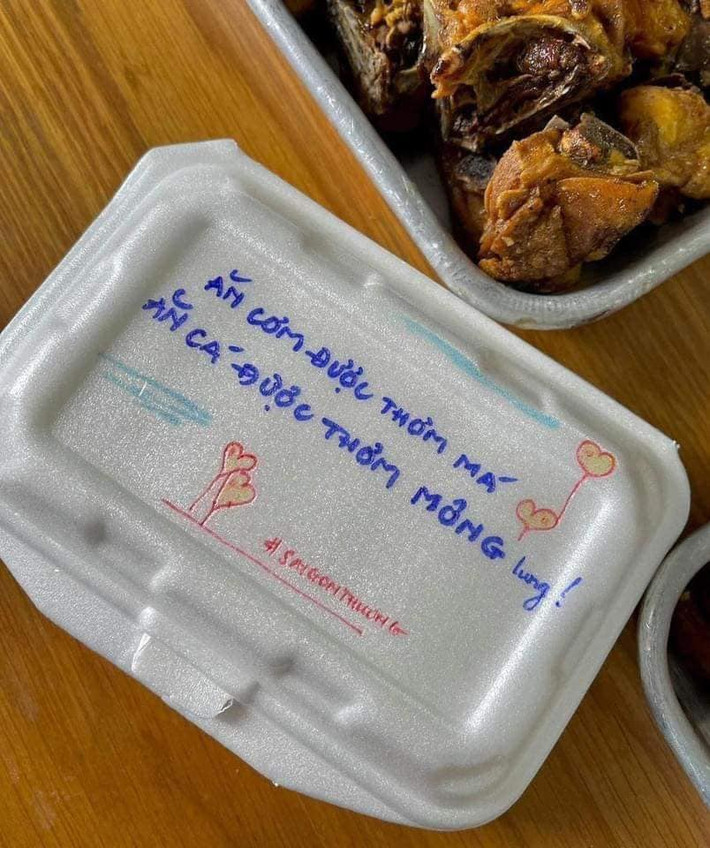 ĂN CƠM ĐƯỢC THƠM MÁ
ĂN CÁ ĐƯỢC THƠM MÔNG lung!
#SAIGONTHUONG